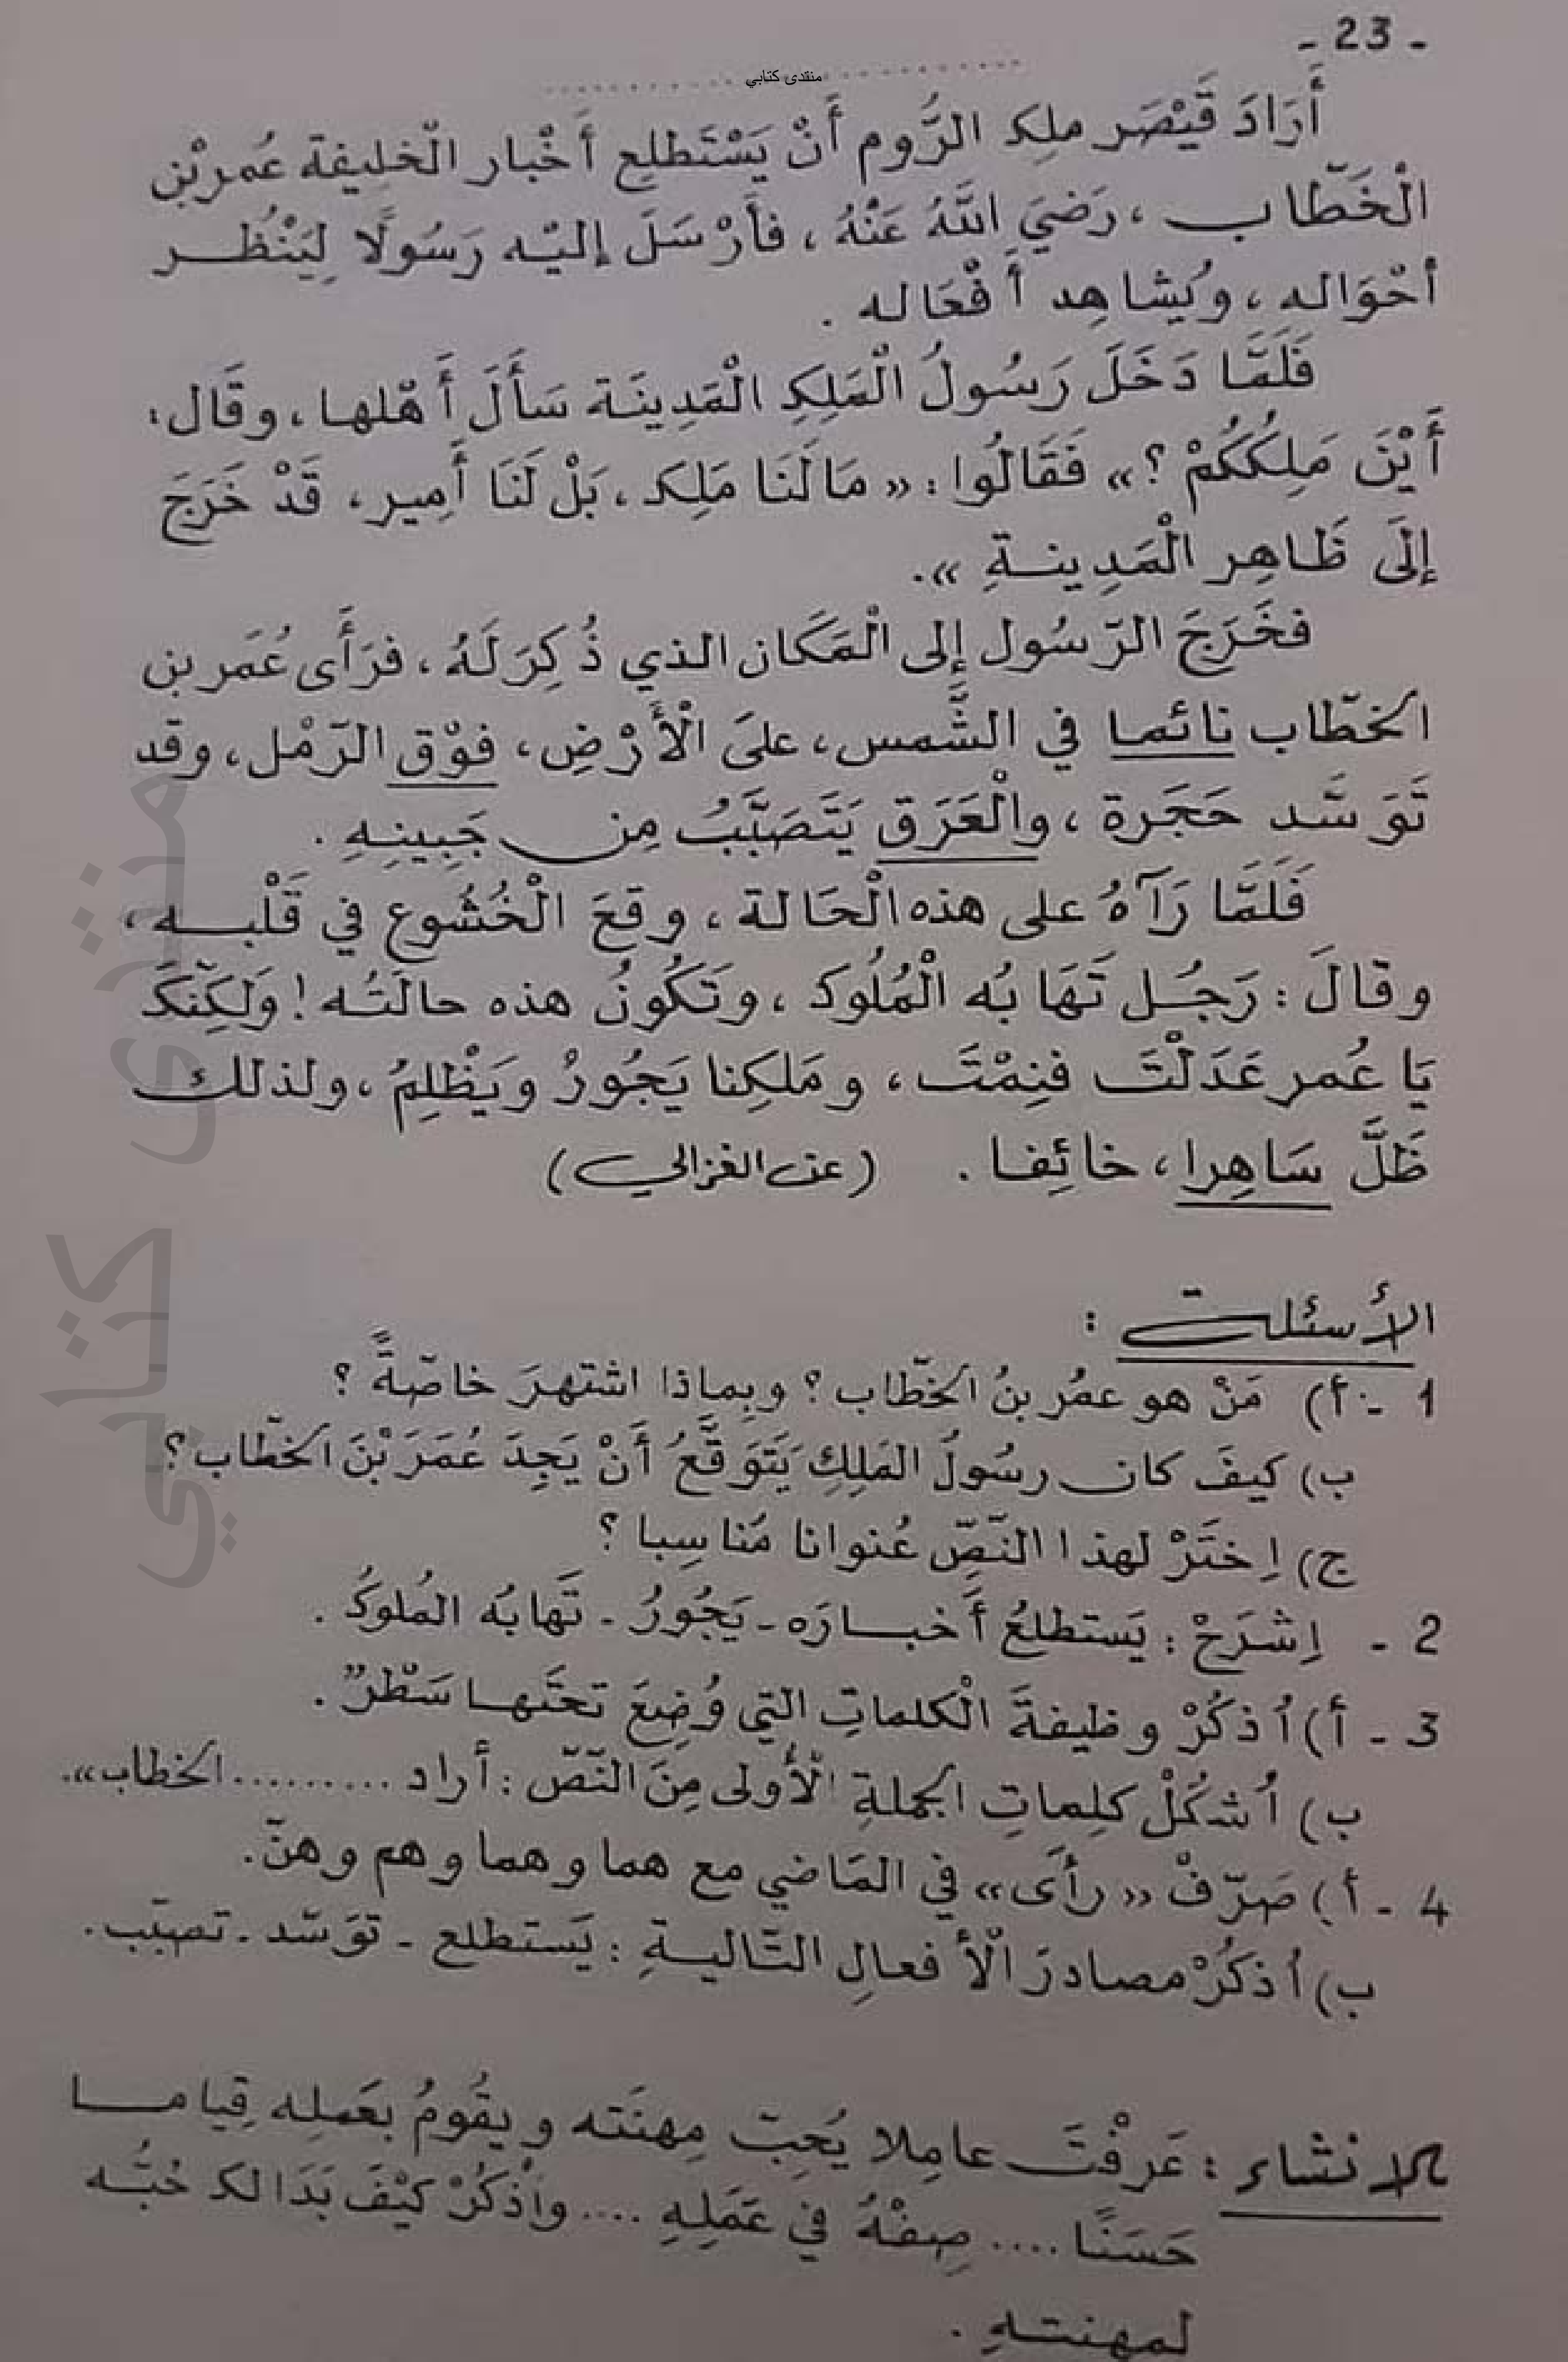 - 23 -
منتدى كتابي
أَرَادَ قَيْصَر ملِك الرُّوم أَنْ يَسْتَطلِع أَخْبار الْخليفة عُمربْن
الْخَطّاب ، رَضيَ اللَّهُ عَنْهُ ، فأَرْسَلَ إليْه رَسُولًا لِيَنْظُر
أحْوَاله ، ويُشاهِد أفْعَاله .
فَلَمّا دَخَلَ رَسُولُ الْمَلِكِ الْمَدِينَة سَأَلَ أَهْلها ، وقَال :
أَيْنَ مَلِكُكُمْ ؟ » فَقَالُوا : « مَالَنَا مَلِك ، بَلْ لَنَا أَمِير ، قَدْ خَرَجَ
إلَى ظَاهِر الْمَدِينةِ » .
فخَرَجَ الرّسُول إلى الْمَكَان الذي ذُكِرَ لَهُ ، فرَأَى عُمَر بن
الخطّاب نائما في الشَّمس ، علَى الْأَرْضِ ، فوْق الرّمْل ، وقد
تَوَسَّد حَجَرة ، والْعَرَق يَتَصَبَّبُ مِن جَبِينِهِ .
فَلَمّا رَآهُ على هذه الْحَالة ، وقعَ الْخُشُوع في قَلْبه ،
وقالَ : رَجُل تَهَابُه الْمُلُوك ، وتَكُونُ هذه حالَتُه ! وَلَكِنّكَ
يَا عُمر عَدَلْتَ فنِمْتَ ، ومَلكِنا يَجُورُ ويَظْلِمُ ، ولذلك
ظَلَّ سَاهِرا ، خائِفا . (عن الغزالي)
الأسئلة :
1 - أ) مَنْ هو عمُر بنُ الخطّاب ؟ وبِماذا اشتهرَ خاصّةً ؟
ب) كيفَ كان رسُولُ المَلِكِ يَتَوَقَّعُ أَنْ يَجِدَ عُمَرَ بْنَ الخطّاب ؟
ج) اِختَرْ لهذا النّصّ عُنوانا مُناسِبا ؟
2 - اِشْرَحْ : يَستطلعُ أَخبارَه - يَجُورُ - تَهابُه المُلوكُ .
3 - أ) اُذكُرْ وظيفةَ الْكلماتِ التي وُضِعَ تحتَها سَطْرٌ .
ب) اُشكُلْ كلِماتِ الجملةِ الْأُولى مِنَ النّصّ : أراد .......... الخطاب » .
4 - أ) صَرّفْ « رأَى » في المَاضي مع هما وهما وهم وهنّ .
ب) اُذكُرْ مصادرَ الْأفعالِ التّاليةِ : يَستطلع - توَسّد - تصبّب .
الانشاء : عَرفْتَ عامِلا يُحِبّ مِهنَته ويقُومُ بعَملِه قِياما
حَسَنًا .... صِفْهُ في عَمَلِهِ .... واُذكُرْ كيْفَ بَدَا لك حُبُّه
لمهنتهِ .
منتدى كتابي